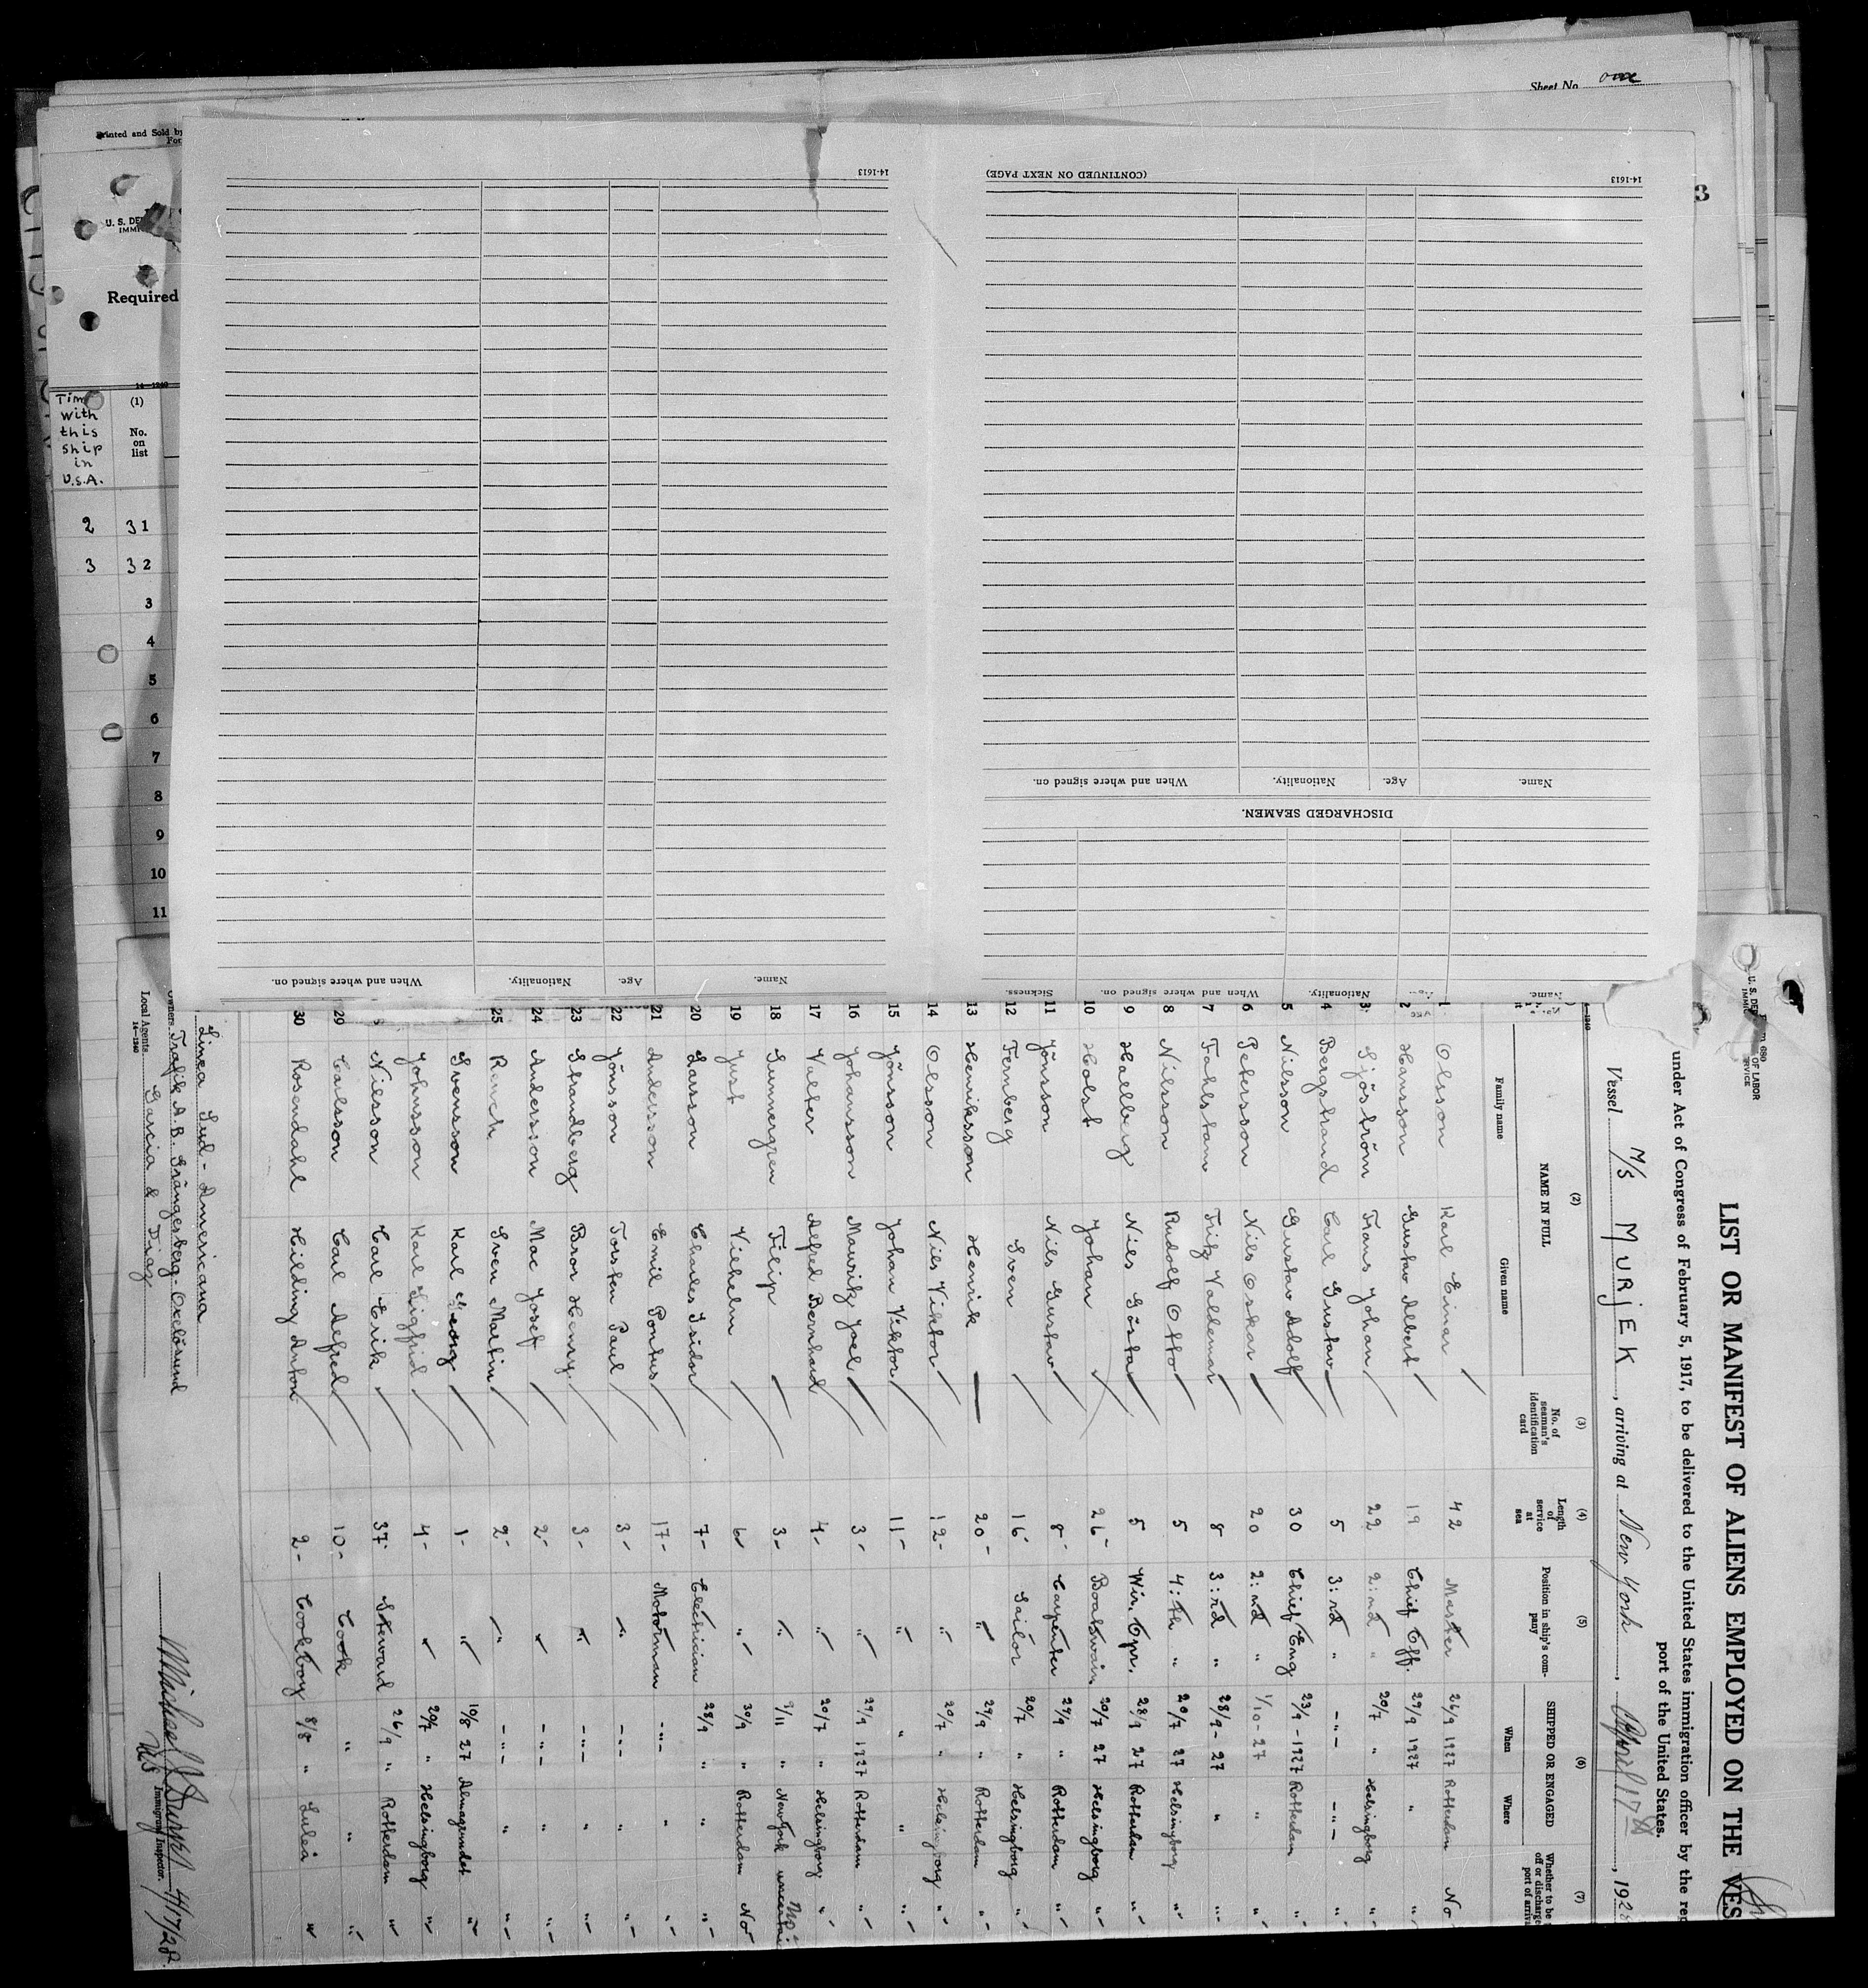 Sheet No. one
Printed and Sold by
U. S. DE
IMMI
Required
14-1240
Time with this ship in U.S.A.
(1)
No. on list
2 31
3 32
3
4
5
6
7
8
9
10
11
14-1613
(CONTINUED ON NEXT PAGE)
14-1613
Name. Age. Nationality. When and where signed on.
DISCHARGED SEAMEN.
Name. Age. Nationality. When and where signed on. Sickness.
Name. Age. Nationality. When and where signed on.
680
U. S. DE OF LABOR
IMM VICE
LIST OR MANIFEST OF ALIENS EMPLOYED ON THE VES
under Act of Congress of February 5, 1917, to be delivered to the United States immigration officer by the rep
port of the United States.
Vessel M/S MURJEK, arriving at New York, April 17, 192
(2) (3) (4) (5) (6) (7)
NAME IN FULL
Family name Given name
No. of seaman's identification card
Length of service at sea
Position in ship's company
SHIPPED OR ENGAGED
When Where
Whether to be off or discharge port of arriva
1 Olsson Karl Einar 42 Master 26/9 1927 Rotterdam No
2 Hansson Gustav Albert 19 Chief Off. 29/9 1927 " "-
3 Sjöström Frans Johan 22 2:nd " 20/7 " Helsingborg "-
4 Bergstrand Carl Gustav 5 3:rd " -"- -"- "-
5 Nilsson Gustav Adolf 30 Chief Eng 23/9-1927 Rotterdam "-
6 Petersson Nils Oskar 20 2:nd " 1/10-27 " "-
7 Fahlstam Fritz Valdemar 8 3:rd " 28/9-27 " "-
8 Nilsson Rudolf Otto 5 4:th " 20/7 27 Helsingborg "
9 Hallberg Nils Gösta 5 Wir. Opr. 28/9 27 Rotterdam "-
10 Holst Johan 26- Boatswain 20/7 27 Helsingborg "-
11 Jönsson Nils Gustav 8- Carpenter 29/9 " Rotterdam "-
12 Fernberg Sven 16- Sailor 20/7 " Helsingborg "-
13 Henriksson Henrik 20- " 29/9 " Rotterdam "-
14 Olsson Nils Viktor 12- " 20/7 " Helsingborg "-
15 Jönsson Johan Viktor 11- " " " "-
16 Johansson Mauritz Joel 3- " 29/9 1927 Rotterdam "-
17 Valter Alfred Bernhard 4- " 20/7 " Helsingborg "-
18 Sunnergren Filip 3- " 9/11 " New York No
19 Just Vilhelm 6- " 30/9 " Rotterdam No
20 Larsson Charles Isidor 7- Electrician 28/9 " " "-
21 Andersson Emil Pontus 17- Motorman -"- " "-
22 Jönsson Torsten Paul 3- " -"- " "-
23 Strandberg Bror Henry 3- " -"- " "-
24 Andersson Mac Josef 2- " -"- " "-
25 Sven Martin 2- " -"- " "-
Svensson Karl Georg 1- " 10/8 27 "
Johnsson Karl Sigfrid 4- " 20/7 " Helsingborg "
Nilsson Carl Erik 37- Steward 26/9 " Rotterdam "
29 Carlsson Carl Alfred 10- Cook " " "
30 Rosendahl Hilding Anton 2- Cookboy 8/8 " Luleå "
Linea Sud-Americana
Owners Trafik A.B. Grängesberg-Oxelösund
Local Agents Garcia & Diaz
14-1240
Michael J. 4/17/28
Immigrant Inspector.